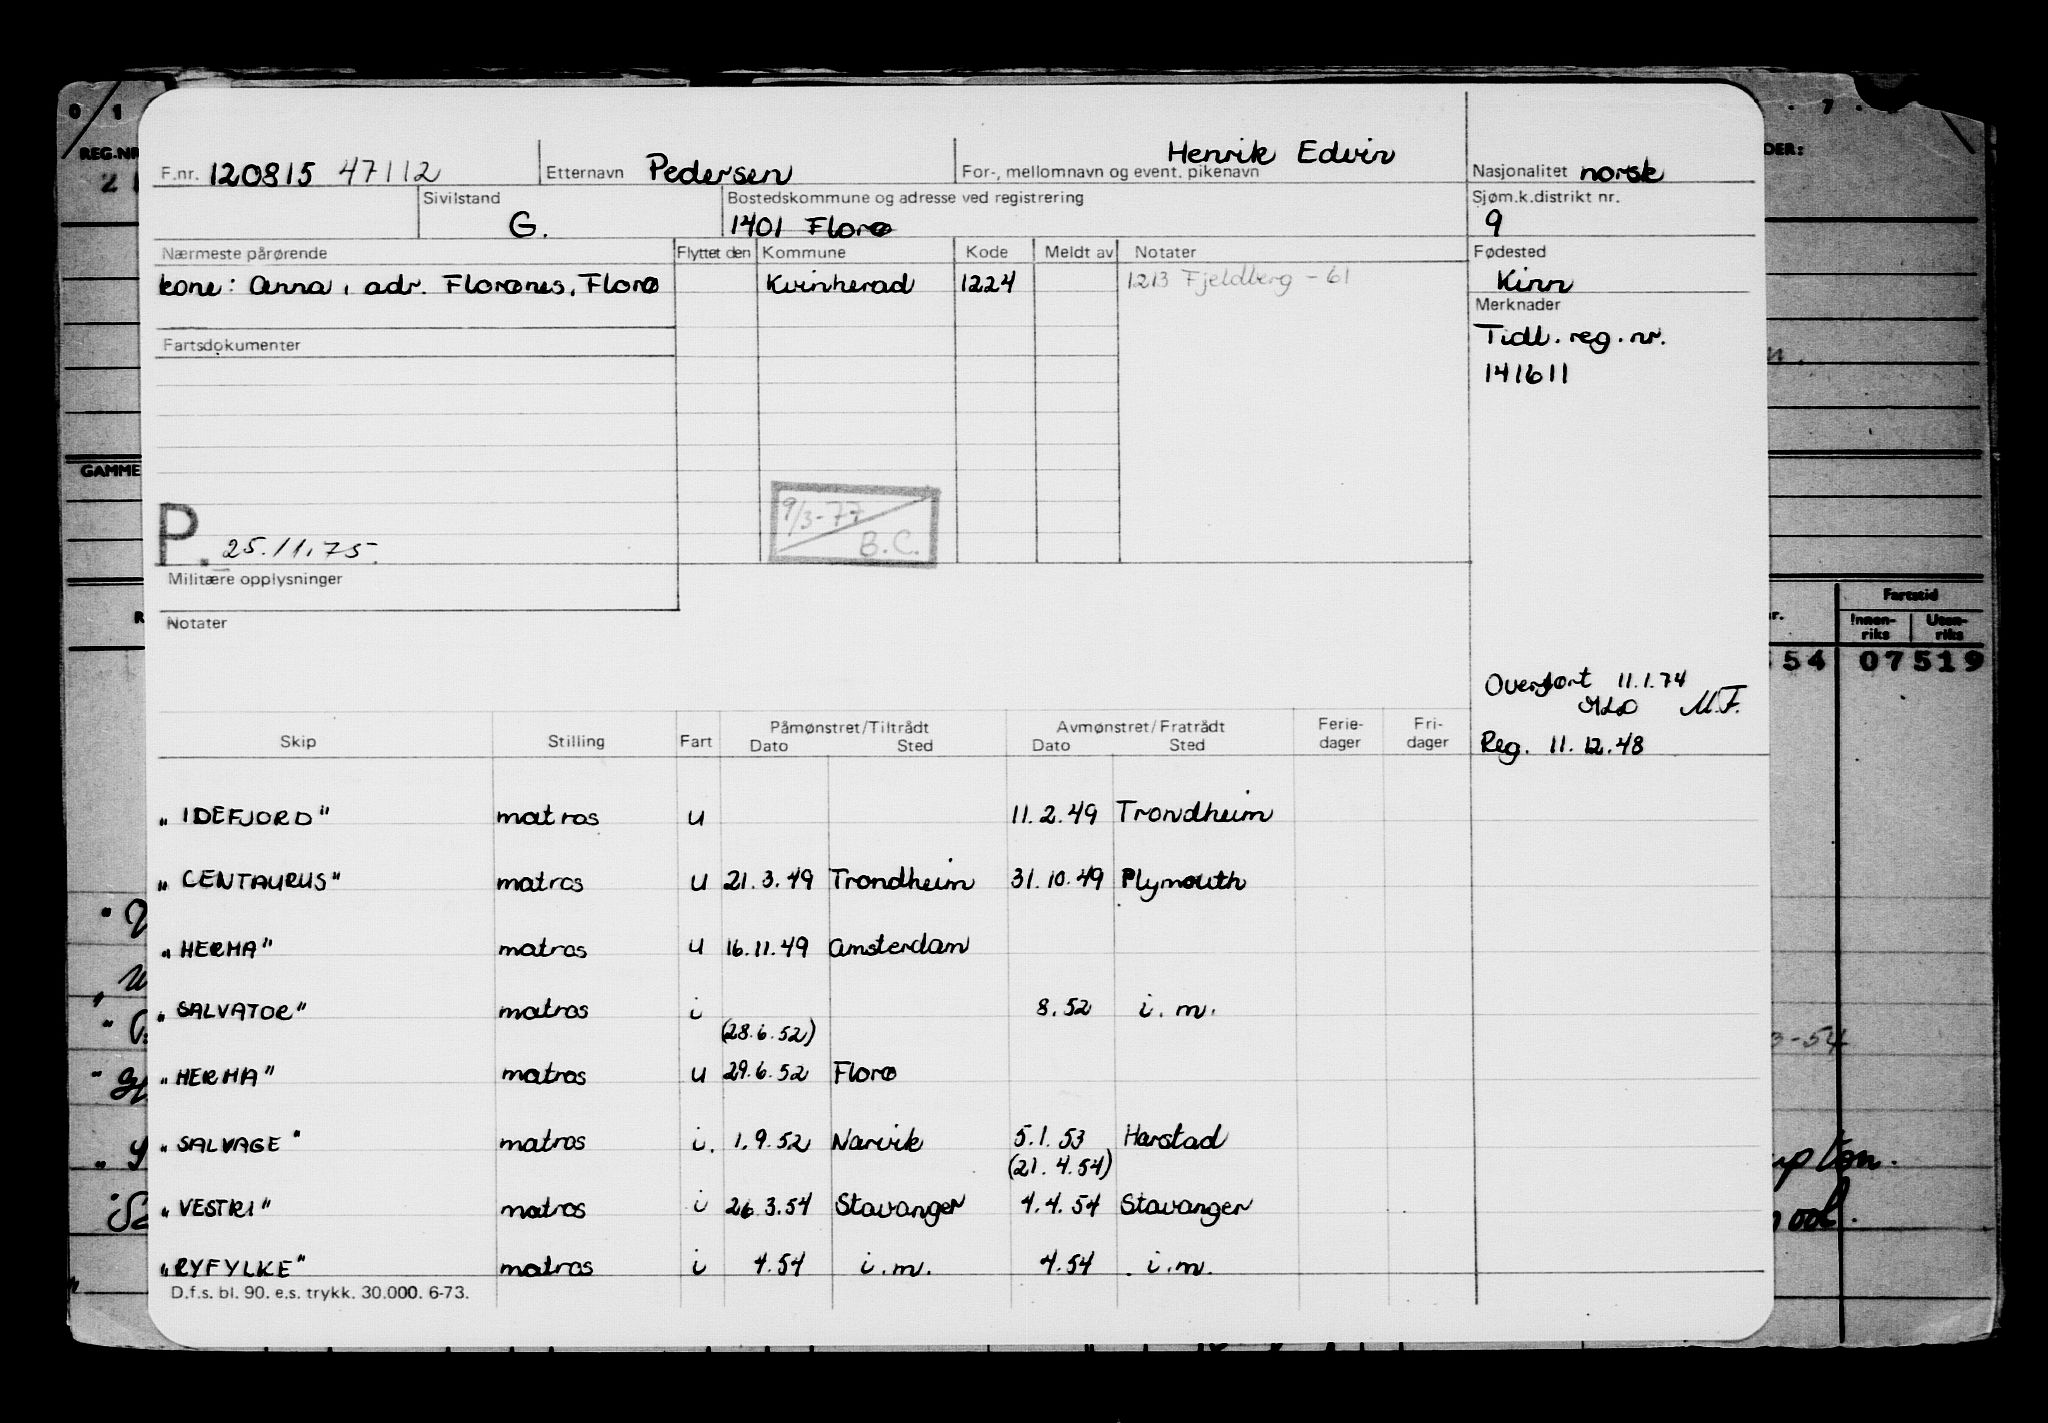 0 1
REG.NR
F.nr. 120815 47112 Etternavn Pedersen For-, mellomnavn og event. pikenavn Henrik Edvin Nasjonalitet norsk
Sivilstand G. Bostedskommune og adresse ved registrering 1401 Florø Sjøm.k.distrikt nr. 9
Nærmeste pårørende Flyttet den Kommune Kode Meldt av Notater Fødested
kone: Anna, adr. Florønes, Florø Kvinherad 1224 1213 Fjeldberg - 61 Kinn
Merknader
Tidl. reg. nr.
141611
Fartsdokumenter
GAMME
9/3-77
B.C.
P. 25.11.75.
Militære opplysninger
Notater
Fartstid
Innen-riks Uten-riks
54 07519
Overført 11.1.74
M.F.
Reg. 11.12.48
Skip Stilling Fart Påmønstret/Tiltrådt Avmønstret/Fratrådt Ferie-dager Fri-dager
Dato Sted Dato Sted
"IDEFJORD" matros u 11.2.49 Trondheim
"CENTAURUS" matros u 21.3.49 Trondheim 31.10.49 Plymouth
"HERMA" matros u 16.11.49 Amsterdam
"SALVATOR" matros i 8.52 i.m.
(28.6.52)
"HERMA" matros u 29.6.52 Florø
"SALVAGE" matros i. 1.9.52 Narvik 5.1.53 Harstad
(21.4.54)
"VESTRI" matros i 26.3.54 Stavanger 4.4.54 Stavanger
"RYFYLKE" matros i 4.54 i.m. 4.54 i.m.
D.f.s. bl. 90. e.s. trykk. 30.000. 6-73.